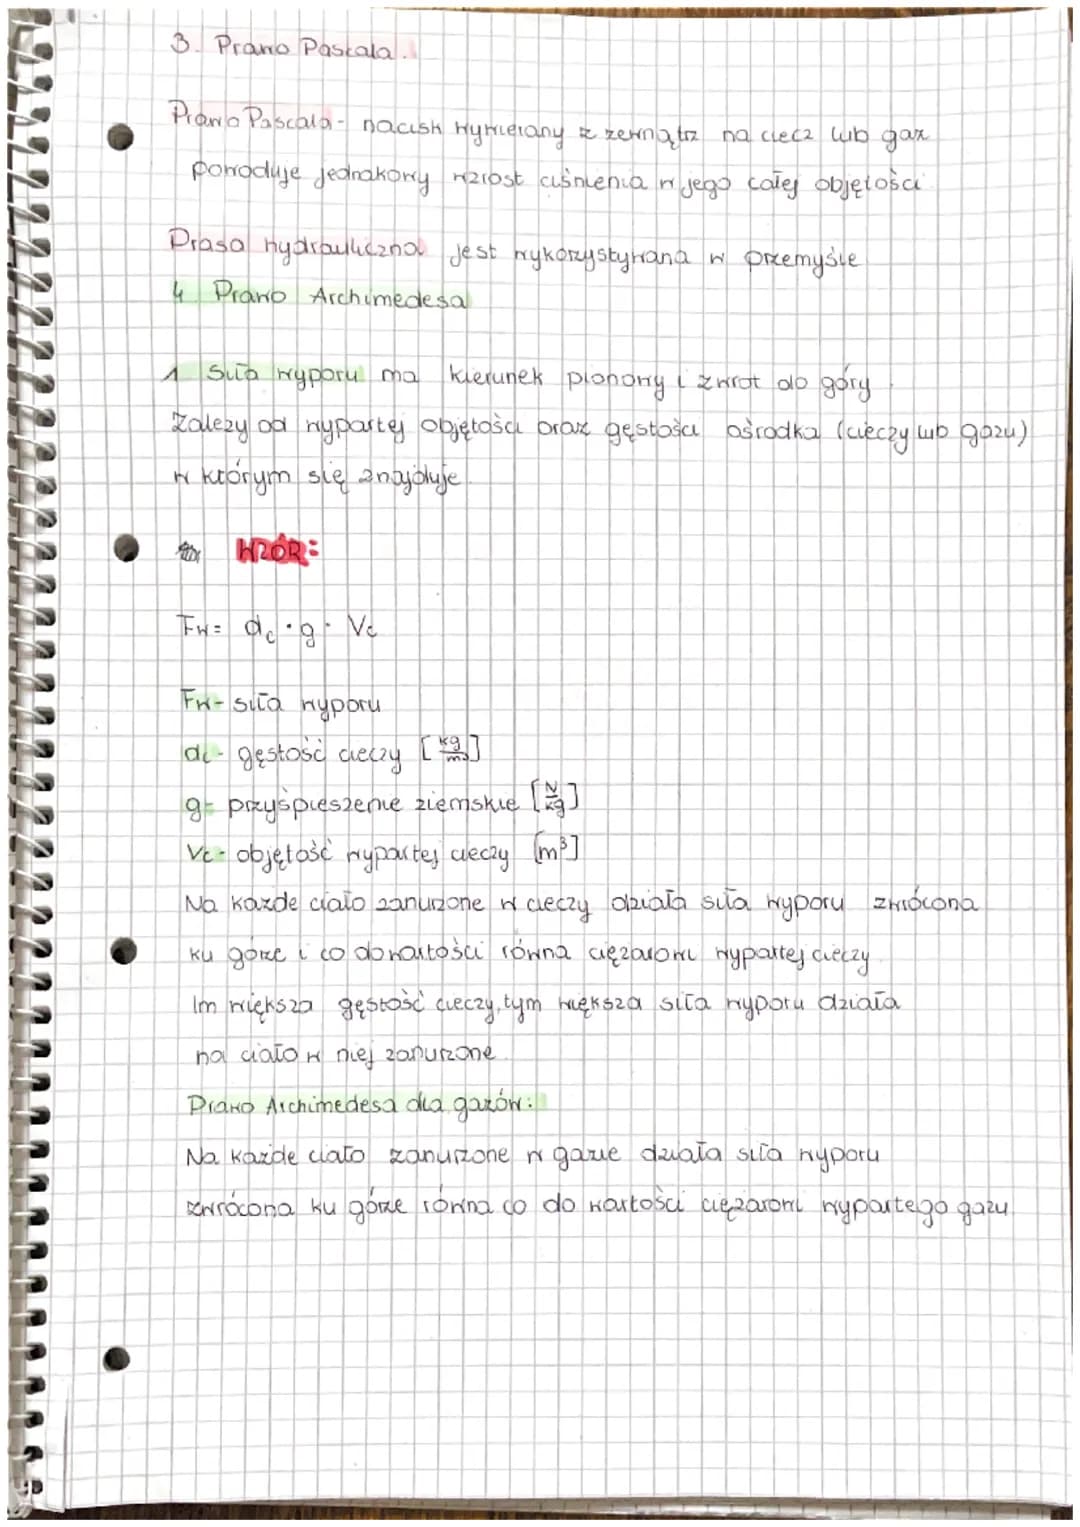 3. Prawo Pascala.
Prawo Pascala - nacisk wywierany z zewnątrz na ciecz lub gaz
powoduje jednakowy wzrost ciśnienia w jego całej objętości
Prasa hydrauliczna jest wykorzystywana w przemyśle
4 Prawo Archimedesa
1 Siła wyporu ma kierunek pionowy i zwrot do góry.
Zależy od wypartej objętości oraz gęstości ośrodka (cieczy lub gazu)
w którym się znajduje.
WZÓR:
Fw = dc · g · Vc
Fw - siła wyporu
dc - gęstość cieczy [kg/m3]
g - przyśpieszenie ziemskie [N/kg]
Vc - objętość wypartej cieczy [m³]
Na każde ciało zanurzone w cieczy działa siła wyporu zwrócona
ku górze i co do wartości równa ciężarowi wypartej cieczy.
Im większa gęstość cieczy, tym większa siła wyporu działa
na ciało w niej zanurzone.
Prawo Archimedesa dla gazów:
Na każde ciało zanurzone w gazie działa siła wyporu
zwrócona ku górze równa co do wartości ciężarowi wypartego gazu.